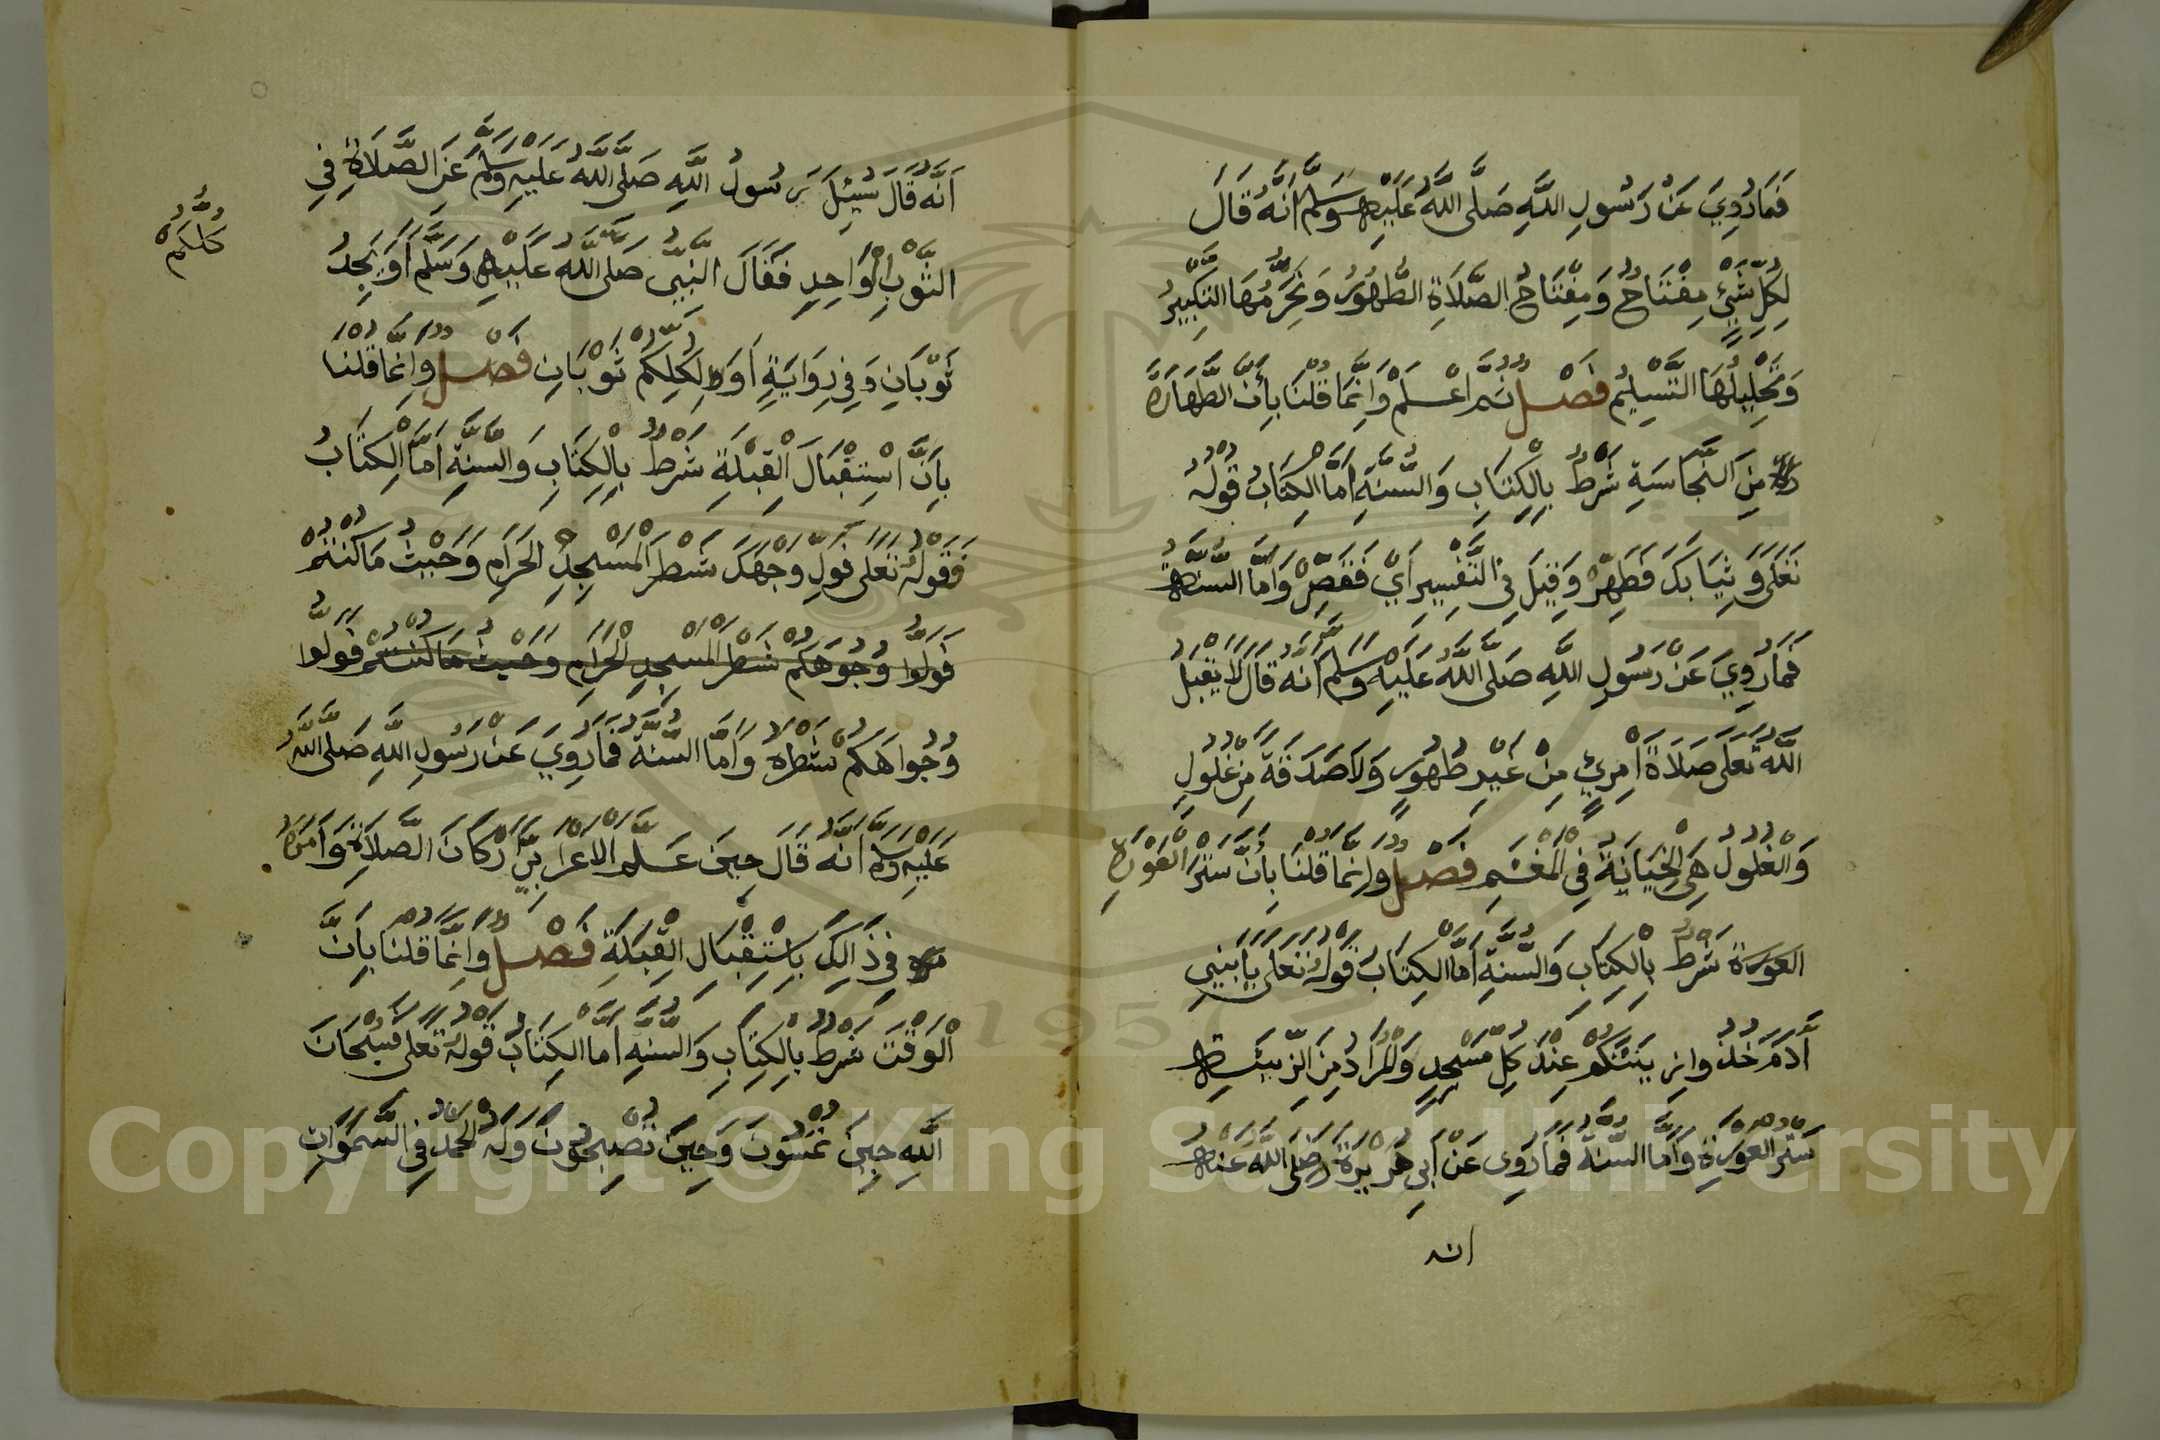 فَمَا رُوِيَ عَنْ رَسُولِ اللَّهِ صَلَّى اللَّهُ عَلَيْهِ وَسَلَّمَ أَنَّهُ قَالَ
لِكُلِّ شَيْءٍ مِفْتَاحٌ وَمِفْتَاحُ الصَّلَاةِ الطَّهُورُ وَتَحْرِيمُهَا التَّكْبِيرُ
وَتَحْلِيلُهَا التَّسْلِيمُ فَصْلٌ ثُمَّ اعْلَمْ وَإِنَّمَا قُلْنَا بِأَنَّ الطَّهَارَةَ
مِنَ النَّجَاسَةِ شَرْطٌ بِالْكِتَابِ وَالسُّنَّةِ أَمَّا الْكِتَابُ قَوْلُهُ
تَعَلَى وَثِيَابَكَ فَطَهِّرْ وَقِيلَ فِي التَّفْسِيرِ أَيْ فَقَصِّرْ وَأَمَّا السُّنَّةُ
فَمَا رُوِيَ عَنْ رَسُولِ اللَّهِ صَلَّى اللَّهُ عَلَيْهِ وَسَلَّمَ أَنَّهُ قَالَ لَا يَقْبَلُ
اللَّهُ تَعَلَى صَلَاةَ امْرِئٍ مِنْ غَيْرِ طُهُورٍ وَلَا صَدَقَةً مِنْ غُلُولٍ
وَالْغُلُولُ هِيَ الْخِيَانَةُ فِي الْمَغْنَمِ فَصْلٌ وَإِنَّمَا قُلْنَا بِأَنَّ سَتْرَ الْعَوْرَةِ
العَوْرَة شَرْطٌ بِالْكِتَابِ وَالسُّنَّةِ أَمَّا الْكِتَابُ قَوْلُهُ تَعَلَى يَابَنِي
آدَمَ خُذُوا زِينَتَكُمْ عِنْدَ كُلِّ مَسْجِدٍ وَالْمُرَادُ مِنَ الزِّينَةِ
سَتْرُ الْعَوْرَةِ وَأَمَّا السُّنَّةُ فَمَا رُوِي عَنْ أَبِي هُرَيْرَةَ رَضِيَ اللَّهُ عَنْهُ
انه
أَنَّهُ قَالَ سُئِلَ رَسُولُ اللَّهِ صَلَّى اللَّهُ عَلَيْهِ وَسَلَّمَ عَنِ الصَّلَاةِ فِي
الثَّوْبِ الْوَاحِدِ فَقَالَ النَّبِيُّ صَلَى اللَّهُ عَلَيْهِ وَسَلَّمَ أَوَيَجِدُ
كُلُّكُمْ
ثَوْبَانِ وَفِي رِوَايَةٍ أَوَ لِكُلِّكُمْ ثَوْبَانِ فَصْلٌ وَإِنَّمَا قُلْنَا
بِأَنَّ اسْتِقْبَالَ الْقِبْلَةِ شَرْطٌ بِالْكِتَابِ وَالسُّنَّةِ أَمَّا الْكِتَابُ
فَقَوْلُهُ تَعَلَى فَوَلِّ وَجْهَكَ شَطْرَ الْمَسْجِدِ الْحَرَامِ وَحَيْثُ مَا كُنْتُمْ
فَوَلُّوا وُجُوهَكُمْ شَطْرَ الْمَسْجِدِ الْحَرَامِ وَحَيْثُ مَا كُنْتُمْ فَوَلُّوا
وُجُواهَكُمْ شَطْرَهُ وَأَمَّا السُّنَّةُ فَمَا رُوِيَ عَنْ رَسُولِ اللَّهِ صَلَى اللَّهُ
عَلَيْهِ وَسَلَّمَ أَنَّهُ قَالَ حِينَ عَلَّمَ الْأَعْرَابِيَّ أَرْكَانَ الصَّلَاةِ وَأَمَرَهُ
فِي ذَالِكَ بِاسْتِقْبَالِ الْقِبْلَةِ فَصْلٌ وَإِنَّمَا قُلْنَا بِأَنَّ
الْوَقْتَ شَرْطٌ بِالْكِتَابِ وَالسُّنَّةِ أَمَّا الْكِتَابُ قَوْلُهُ تَعَلَى فَسُبْحَانَ
اللَّهِ حِينَ تُمْسُونَ وَحِينَ تُصْبِحُونَ وَلَهُ الْحَمْدُ فِي السَّمَوَاتِ
Copyright © King Saud University
1957